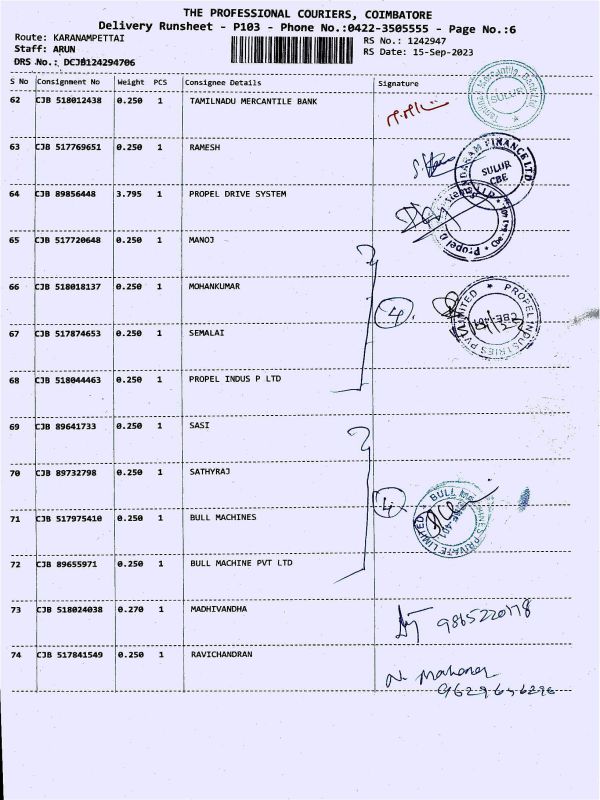 THE PROFESSIONAL COURIERS, COIMBATORE
Delivery Runsheet - P103 - Phone No.:0422-3505555 - Page No.:6
Route: KARANAMPETTAI RS No.: 1242947
Staff: ARUN RS Date: 15-Sep-2023
DRS No.: DCJB124294706
S No Consignment No Weight PCS Consignee Details Signature
62 CJB 518012438 0.250 1 TAMILNADU MERCANTILE BANK
SULUR
63 CJB 517769651 0.250 1 RAMESH
FINANCE LTD
SULUR
CBE
64 CJB 89856448 3.795 1 PROPEL DRIVE SYSTEM
65 CJB 517720648 0.250 1 MANOJ
66 CJB 518018137 0.250 1 MOHANKUMAR
4
PROPEL INDUSTRIES PVT LIMITED
67 CJB 517874653 0.250 1 SEMALAI
68 CJB 518044463 0.250 1 PROPEL INDUS P LTD
69 CJB 89641733 0.250 1 SASI
70 CJB 89732798 0.250 1 SATHYRAJ
4
BULL MACHINES PRIVATE LIMITED
71 CJB 517975410 0.250 1 BULL MACHINES
72 CJB 89655971 0.250 1 BULL MACHINE PVT LTD
73 CJB 518024038 0.270 1 MADHIVANDHA
74 CJB 517841549 0.250 1 RAVICHANDRAN